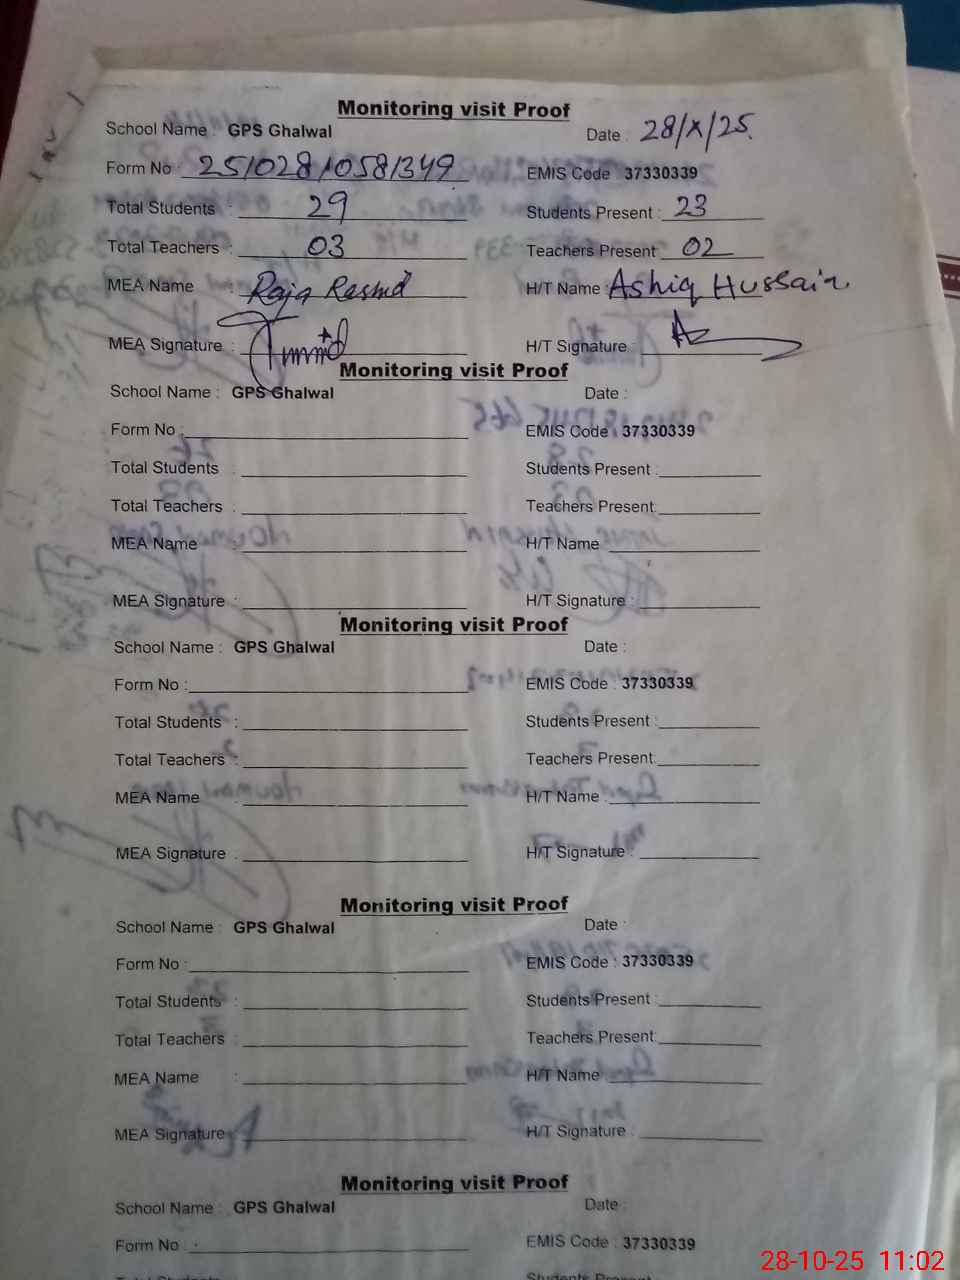 Monitoring visit Proof
School Name : GPS Ghalwal Date : 28/X/25.
Form No : 25102810581349 EMIS Code 37330339
Total Students : 29 Students Present : 23
Total Teachers : 03 Teachers Present: 02
MEA Name : Raja Rashid H/T Name : Ashiq Hussain
MEA Signature : H/T Signature :
Monitoring visit Proof
School Name : GPS Ghalwal Date :
Form No : EMIS Code : 37330339
Total Students : Students Present :
Total Teachers : Teachers Present:
MEA Name : H/T Name :
MEA Signature : H/T Signature :
Monitoring visit Proof
School Name : GPS Ghalwal Date :
Form No : EMIS Code : 37330339
Total Students : Students Present :
Total Teachers : Teachers Present:
MEA Name : H/T Name :
MEA Signature : H/T Signature :
Monitoring visit Proof
School Name : GPS Ghalwal Date :
Form No : EMIS Code : 37330339
Total Students : Students Present :
Total Teachers : Teachers Present:
MEA Name : H/T Name :
MEA Signature : H/T Signature :
Monitoring visit Proof
School Name : GPS Ghalwal Date :
Form No : EMIS Code : 37330339
Total Students Students Present
28-10-25 11:02